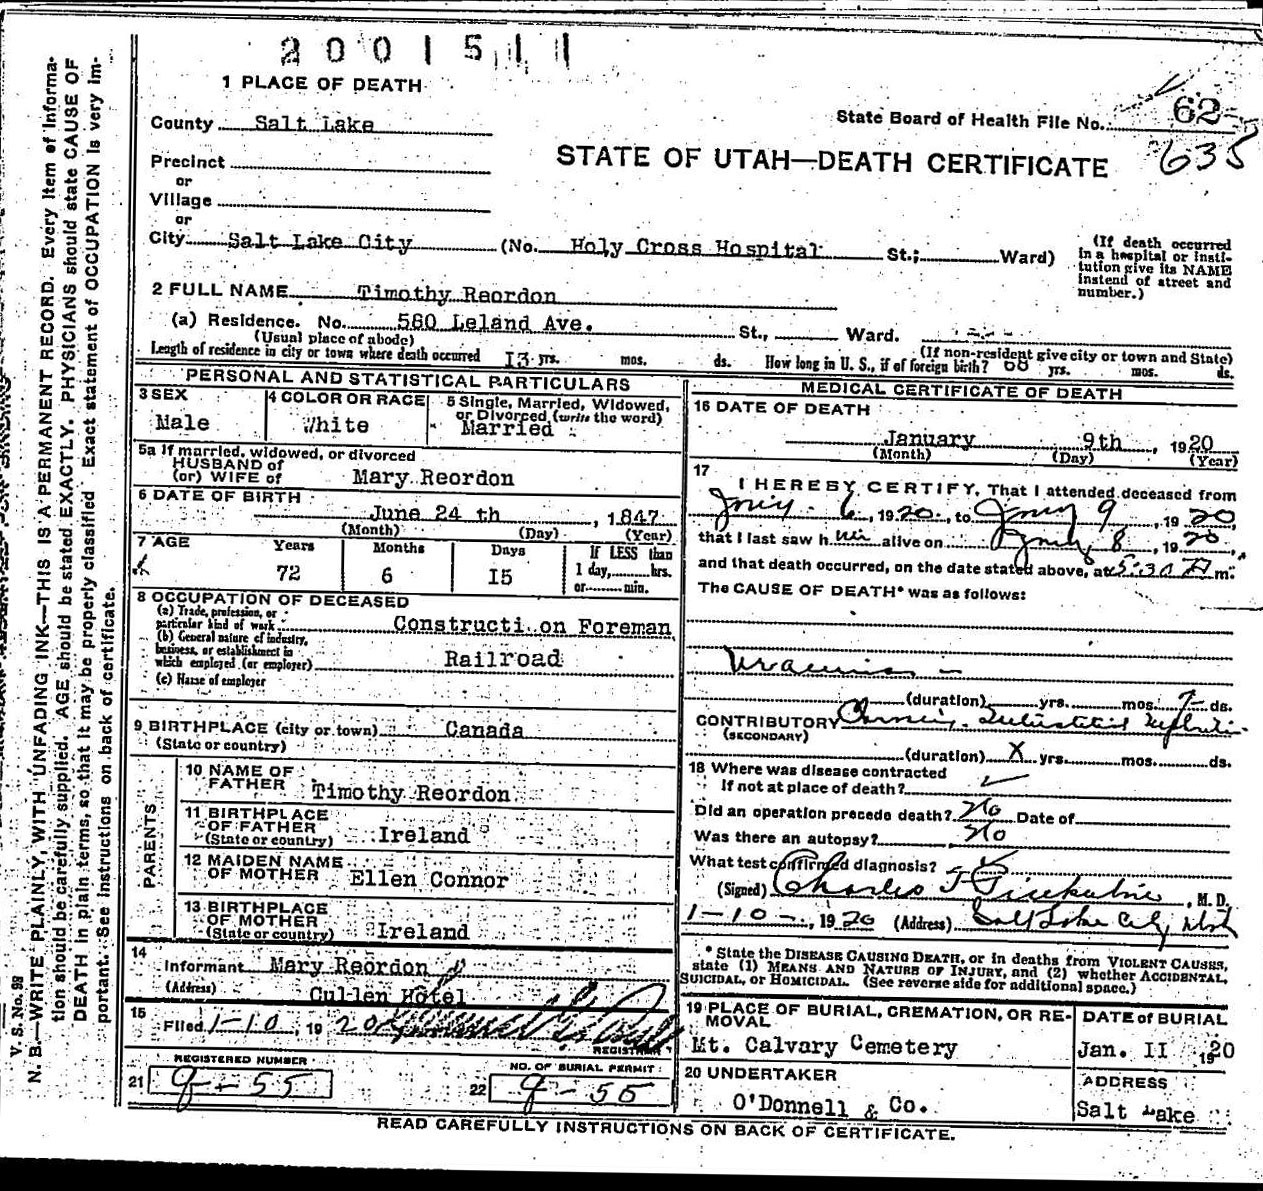 2001511
1 PLACE OF DEATH
County Salt Lake
State Board of Health File No. 62
635
STATE OF UTAH—DEATH CERTIFICATE
Precinct
or
Village
or
City Salt Lake City (No. Holy Cross Hospital St.; Ward)
(If death occurred in a hospital or institution give its NAME instead of street and number.)
2 FULL NAME Timothy Reordon
(a) Residence. No. 560 Leland Ave. St., Ward.
(Usual place of abode)
(If non-resident give city or town and State)
Length of residence in city or town where death occurred 13 yrs. mos. ds. How long in U. S., if of foreign birth? 60 yrs. mos. ds.
PERSONAL AND STATISTICAL PARTICULARS
3 SEX
Male
4 COLOR OR RACE
White
5 Single, Married, Widowed,
or Divorced (write the word)
Married
5a If married, widowed, or divorced
HUSBAND of
(or) WIFE of Mary Reordon
6 DATE OF BIRTH
June 24 th, 1847
(Month) (Day) (Year)
7 AGE Years Months Days If LESS than
1 day, hrs.
or min.
72 6 I5
8 OCCUPATION OF DECEASED
(a) Trade, profession, or
particular kind of work Constructi on Foreman
(b) General nature of industry,
business, or establishment in
which employed (or employer) Railroad
(c) Name of employer
9 BIRTHPLACE (city or town) Canada
(State or country)
PARENTS
10 NAME OF
FATHER Timothy Reordon
11 BIRTHPLACE
OF FATHER
(State or country) Ireland
12 MAIDEN NAME
OF MOTHER Ellen Connor
13 BIRTHPLACE
OF MOTHER
(State or country) Ireland
14
Informant Mary Reordon
(Address) Cullen Hotel
15
Filed 1-10, 1920
REGISTRAR
REGISTERED NUMBER
21 9-55
NO. OF BURIAL PERMIT:
22 9-55
MEDICAL CERTIFICATE OF DEATH
16 DATE OF DEATH
January 9th, 1920
(Month) (Day) (Year)
17
I HEREBY CERTIFY, That I attended deceased from
Jany. 6, 1920, to Jany 9, 1920,
that I last saw him alive on Jany 8, 1920,
and that death occurred, on the date stated above, at 5:30 A m.
The CAUSE OF DEATH* was as follows:
Uraemia
(duration) yrs. mos. 7 ds.
CONTRIBUTORY Chronic Interstitial Nephritis
(SECONDARY)
(duration) X yrs. mos. ds.
18 Where was disease contracted
If not at place of death?
Did an operation precede death? No Date of
Was there an autopsy? No
What test confirmed diagnosis?
(Signed) Charles F. , M. D.
1-10-, 1920 (Address) Salt Lake City Utah
* State the DISEASE CAUSING DEATH, or in deaths from VIOLENT CAUSES,
state (1) MEANS AND NATURE OF INJURY, and (2) whether ACCIDENTAL,
SUICIDAL, or HOMICIDAL. (See reverse side for additional space.)
19 PLACE OF BURIAL, CREMATION, OR REMOVAL
Mt. Calvary Cemetery
DATE of BURIAL
Jan. II 1920
20 UNDERTAKER
O'Donnell & Co.
ADDRESS
Salt Lake
READ CAREFULLY INSTRUCTIONS ON BACK OF CERTIFICATE.
V. S. No. 98
N. B.—WRITE PLAINLY, WITH UNFADING INK—THIS IS A PERMANENT RECORD. Every item of Information should be carefully supplied. AGE should be stated EXACTLY. PHYSICIANS should state CAUSE OF DEATH in plain terms, so that it may be properly classified. Exact statement of OCCUPATION is very important. See instructions on back of certificate.